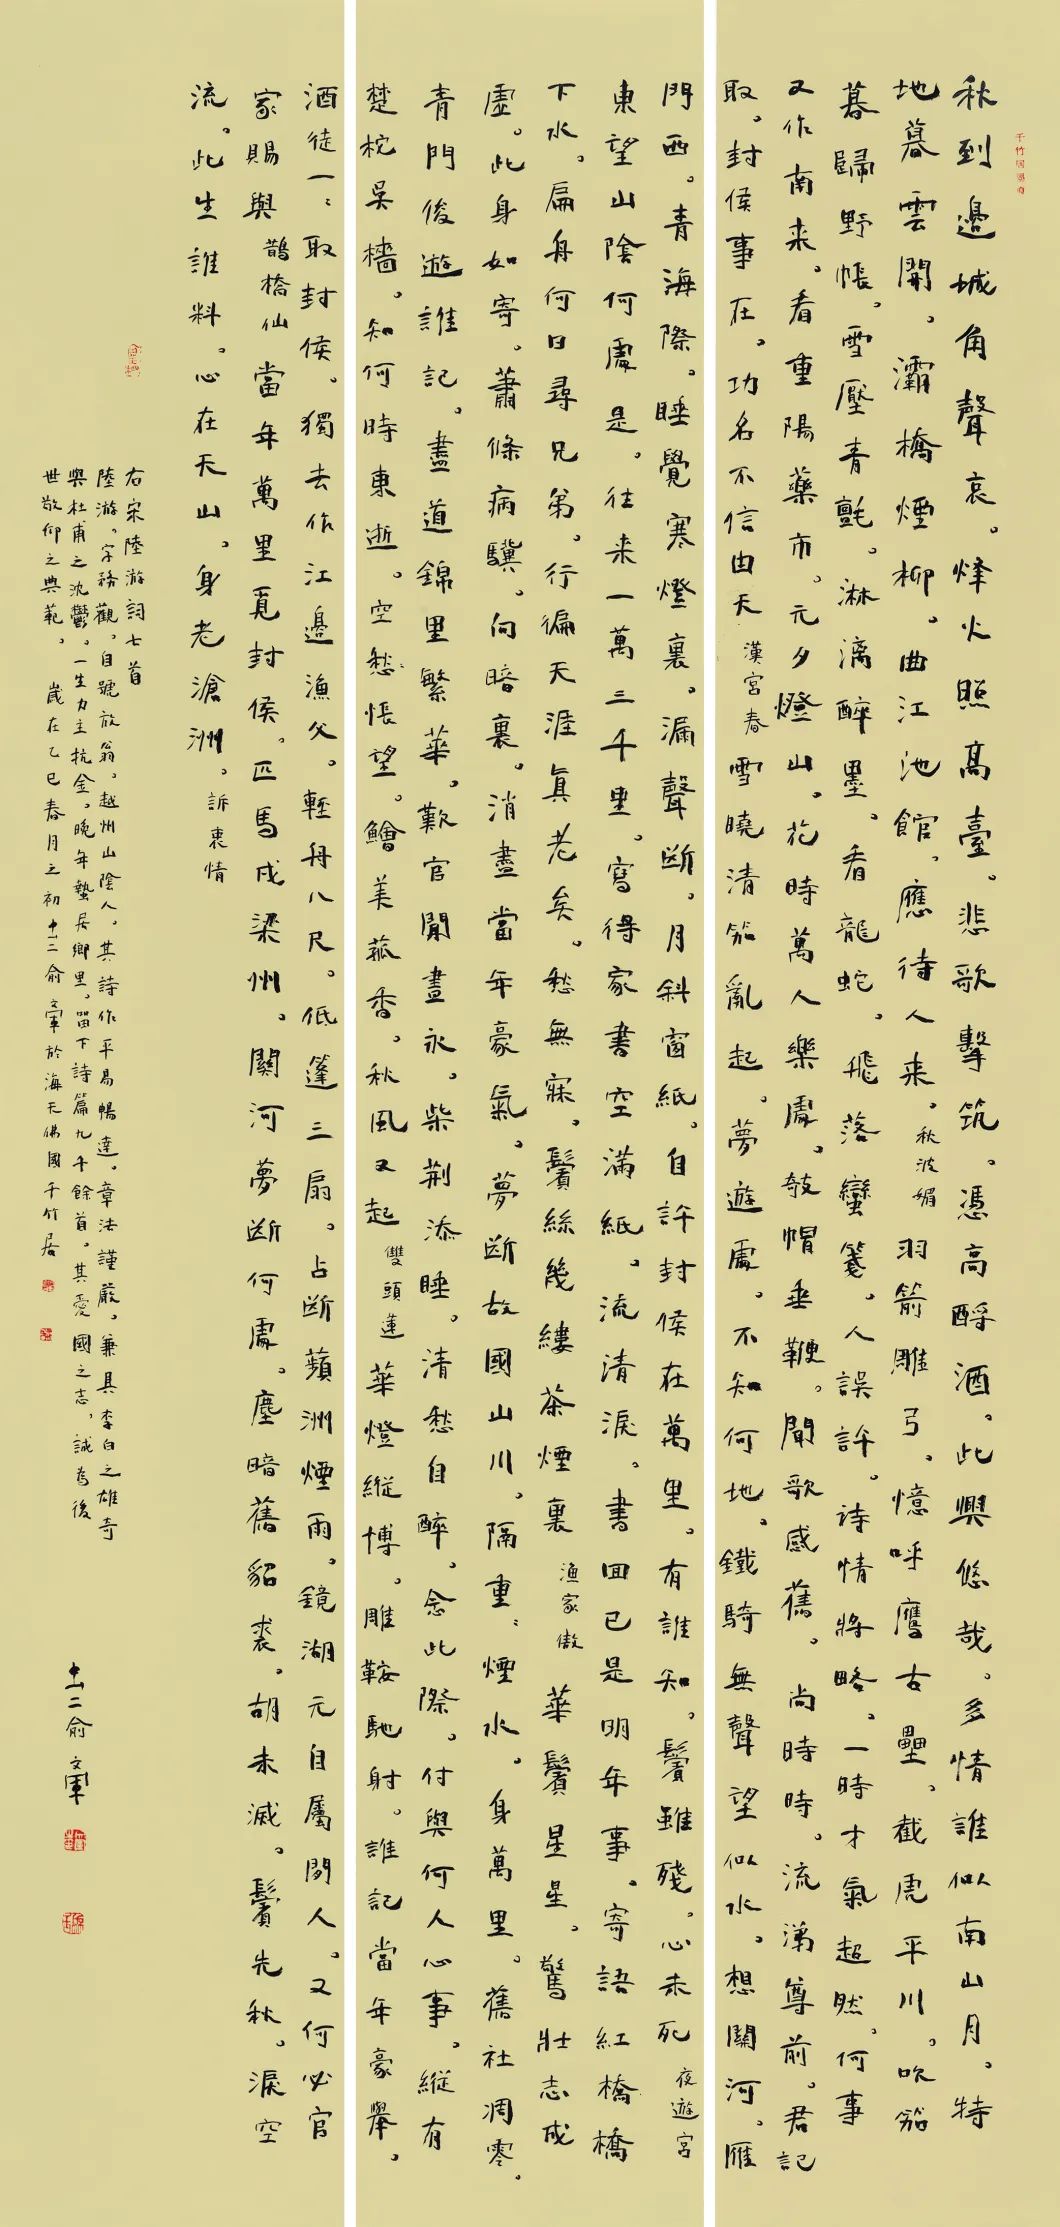 秋到邊城角聲哀。烽火照高臺。悲歌擊筑。憑高酹酒。此興悠哉。多情誰似南山月。特
地暮雲開。灞橋煙柳。曲江池館。應待人来。秋波媚 羽箭雕弓。憶呼鷹古壘。截虎平川。吹笳
暮歸野帳。雪壓青氈。淋漓醉墨。看龍蛇。飛落蠻箋。人誤許。诗情將略。一時才氣超然。何事
又作南来。看重陽藥市。元夕燈山。花時萬人樂處。攲帽垂鞭。聞歌感舊。尚時時。流涕尊前。君記
取。封侯事在。功名不信由天 漢宮春 雪曉清笳亂起。夢遊處。不知何地。鐵騎無聲望似水。想關河。雁
門西。青海際。睡覺寒燈裏。漏聲断。月斜窗紙。自許封侯在萬里。有誰知。鬢雖殘。心未死 夜遊宮
東望山陰何處是。往来一萬三千里。寫得家書空滿紙。流清淚。書回已是明年事。寄語紅橋橋
下水。扁舟何日尋兄弟。行徧天涯真老矣。愁無寐。鬢絲幾縷茶煙裏 漁家傲 華鬢星星。驚壯志成
虛。此身如寄。蕭條病驥。向暗裏。消盡當年豪氣。夢断故國山川。隔重重煙水。身萬里。舊社凋零。
青門後遊誰記。盡道錦里繁華。歎官閒晝永。柴荆添睡。清愁自醉。念此際。付與何人心事。縱有
楚柁吳檣。知何時東逝。空愁悵望。鱠美菰香。秋風又起 雙頭蓮 華燈縱博。雕鞍馳射。誰記當年豪舉。
酒徒一一取封侯。獨去作江邊漁父。輕舟八尺。低篷三扇。占断蘋洲煙雨。鏡湖元自屬閒人。又何必官
家賜與 鵲橋仙 當年萬里覓封侯。匹馬戍梁州。關河夢断何處。塵暗舊貂裘。胡未滅。鬢先秋。淚空
流。此生誰料。心在天山。身老滄洲。訴衷情
右宋陸游詞七首
陸游。字務觀。自號放翁。越州山陰人。其詩作平易暢達。章法謹嚴。兼具李白之雄奇
與杜甫之沈鬱。一生力主抗金。晚年蟄居鄉里。留下詩篇九千餘首。其憂國之志。誠為後
世敬仰之典範。 歲在乙巳春月之初 中二俞軍於海天佛國千竹居
中二俞文軍